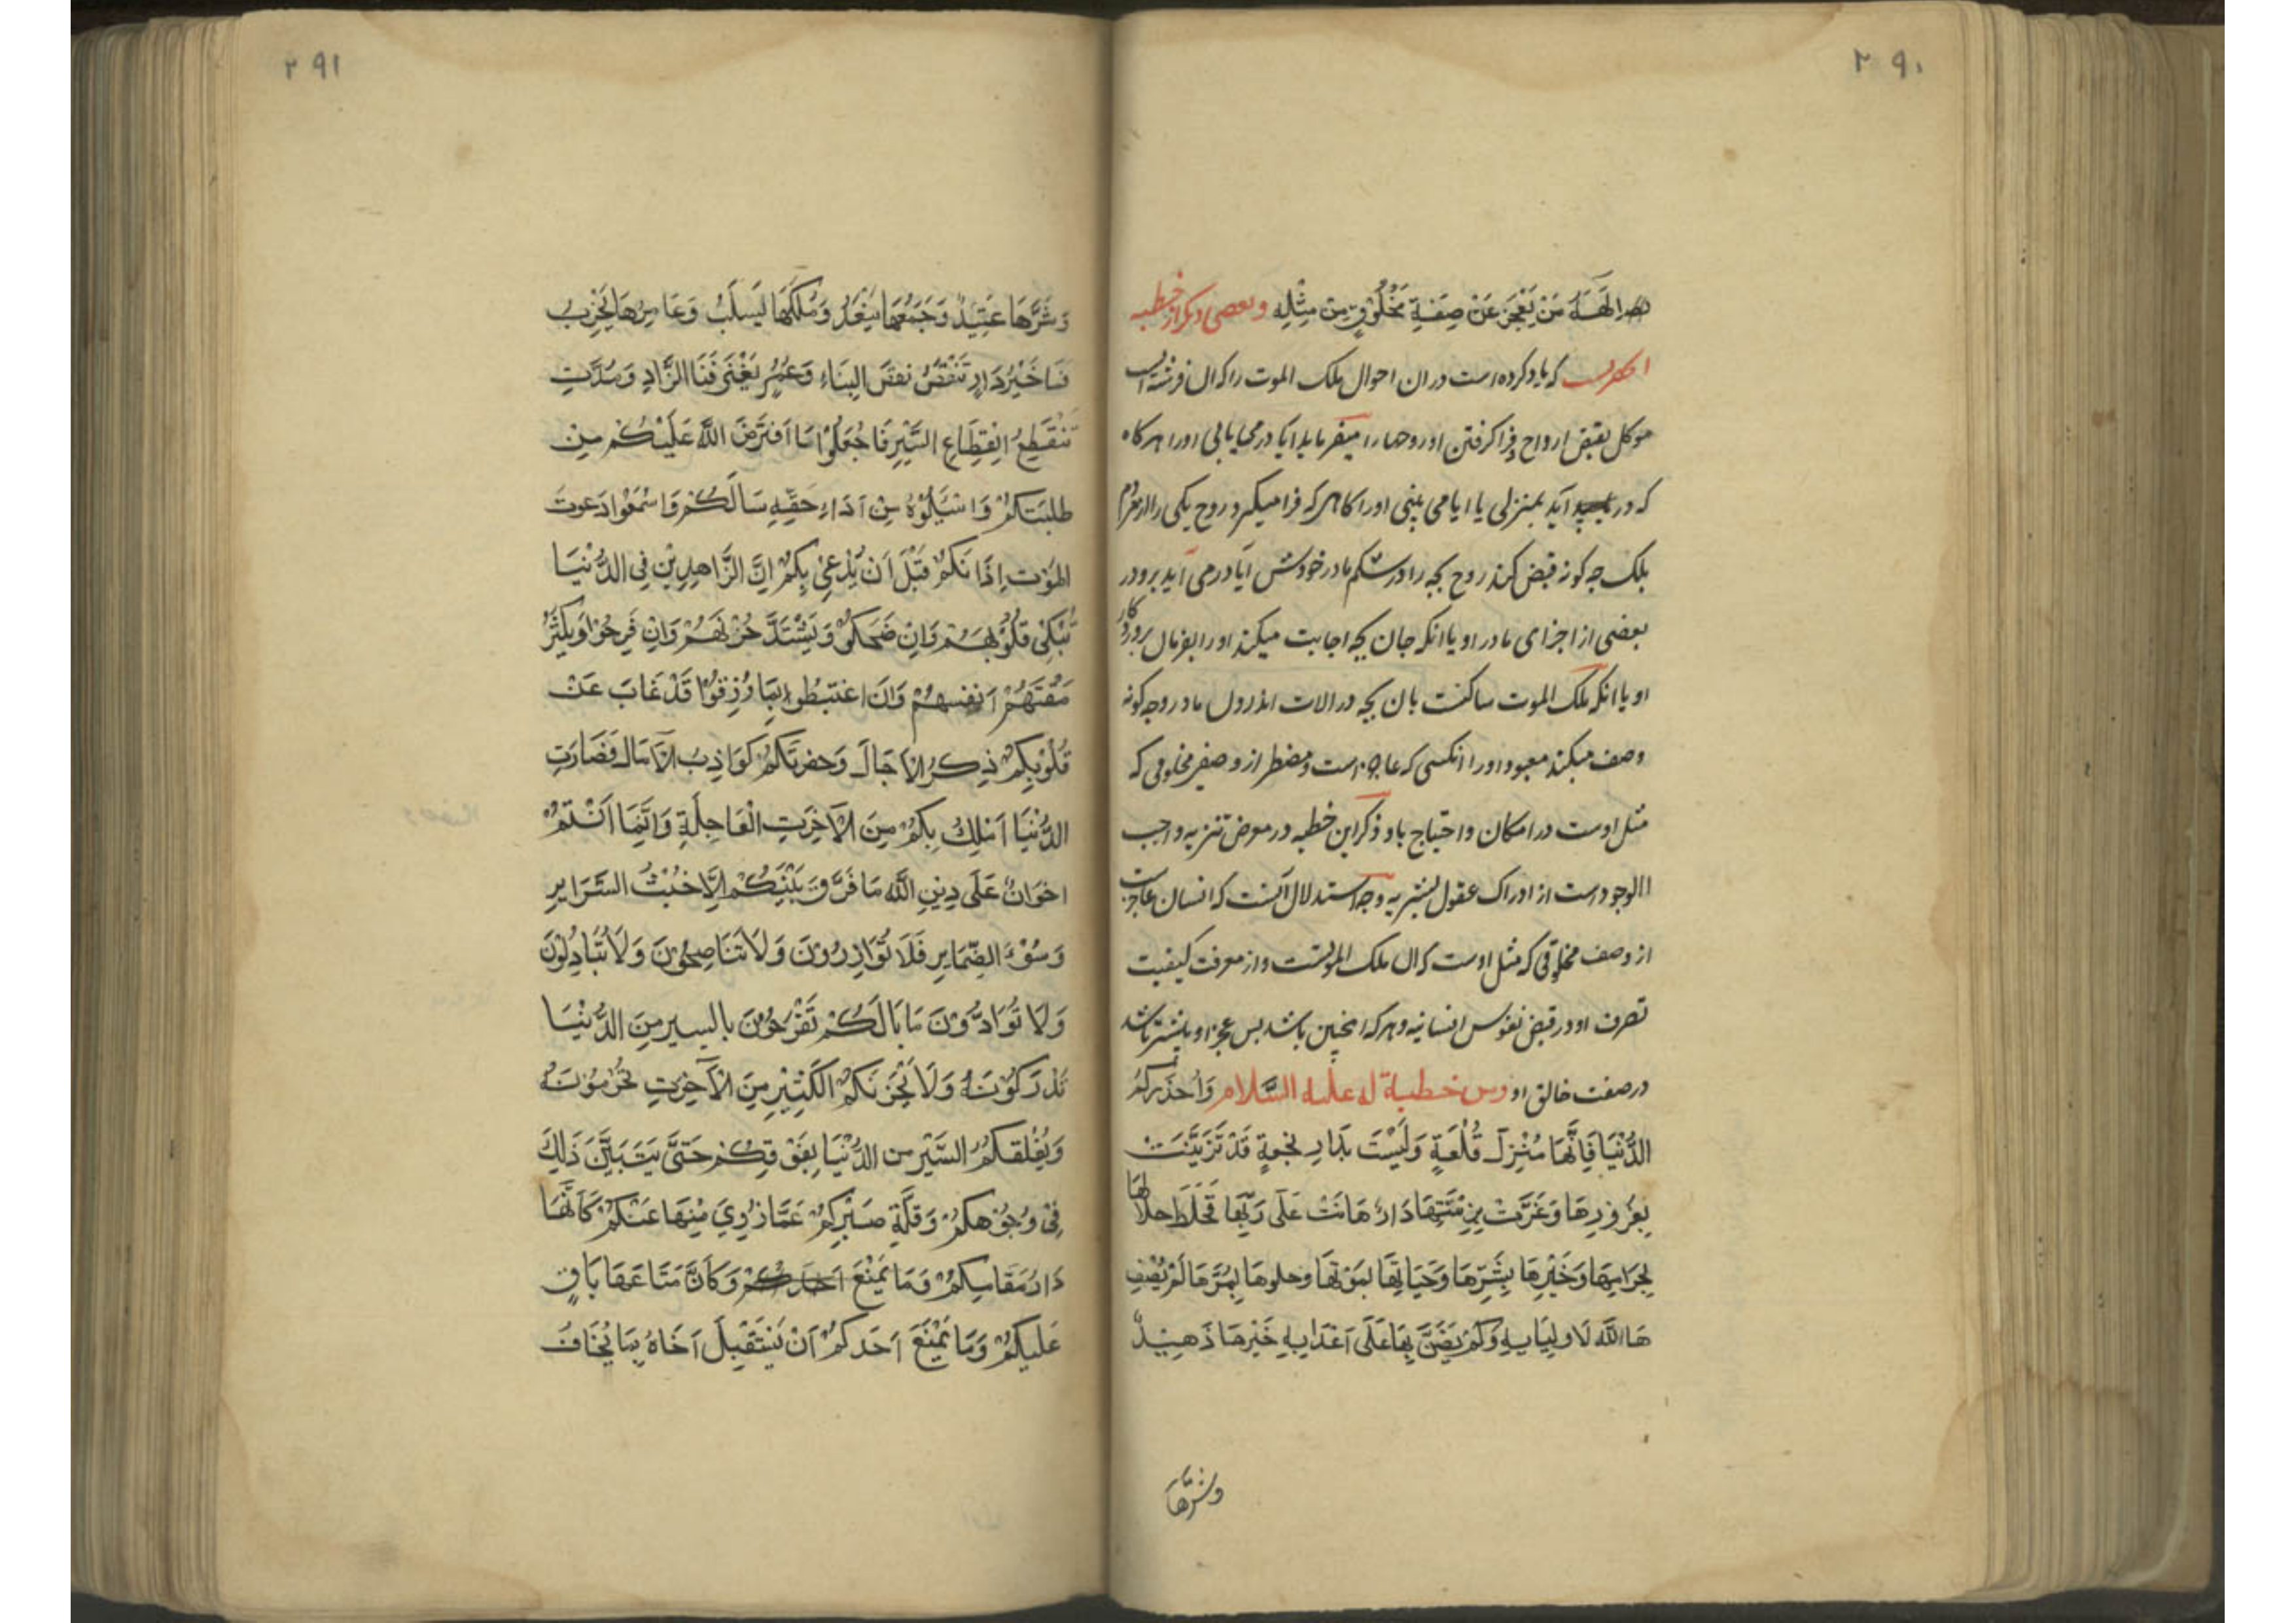 ۲۹۰
یصف الهه من یعجز عن صفة مخلوق من مثله وبعضی دیکر از خطبه
که یاد کرده است در ان احوال ملک الموت را که ان فرشته ایست
موکل بقبض ارواح و فرا کرفتن او روحها را میفرماید ایا در می یابی او را هرکاه
که در اید بمنزلی یا ایا می بینی او را کاهی که فرا میکیرد روح یکی را از مردم
بلک چه کونه قبض کند روح بچه را در شکم مادر خودش آیا در می آید برو در
بعضی از اجزای مادر او یا انکه جان بچه اجابت میکند او را بفرمان پروردکار
او یا انکه ملک الموت ساکنست بان بچه در الات اندرون مادر و چه کونه
وصف میکند معبود او را انکسی که عاجز است و مضطر از وصف مخلوقی که
مثل اوست در امکان و احتیاج باو و ذکر این خطبه در معرض تنزیه واجب
الوجود است از ادراک عقول بشریه و وجه استدلال آنست که انسان عاجزست
از وصف مخلوقی که مثل اوست که ان ملک الموتست و از معرفت کیفیت
تصرف او در قبض نفوس انسانیه و هرکه اینچنین باشد پس عجز او بیشتر باشد
در صفت خالق او ومن خطبة له علیه السَّلام وَاُحَذِّرکُمُ
الدُّنْیَا فَاِنَّهَا مَنْزِلُ قُلْعَةٍ وَلَیْسَتْ بِدَارِ نُجْعَةٍ قَدْ تَزَیَّنَتْ
بِغُرُورِهَا وَغَرَّتْ بِزِیْنَتِهَا دَارٌ هَانَتْ عَلَی رَبِّهَا فَخَلَطَ حلالَهَا
بِحَرَامِهَا وَخَیْرِهَا بِشَرِّهَا وَحَیَاتِهَا بمَوْتِهَا وحلوها بِمُرِّهَا لَمْ یُصْفِ
هَا اللَّه لَاولِیَایِهِ وَلَمْ یَضِنَّ بِهَا عَلَی اَعْدَایِهِ خَیْرهَا زَهِیْدٌ
وشرها
۲۹۱
وَشَرُّهَا عَتِیْدٌ وَجَمْعُهَا یَنْفَدُ وَمُلْکُهَا یُسلَبُ وَعَامِرُهَا یَخْرِبُ
فَمَا خَیْرُ دَارٍ تُنْقَضُ نقضَ البِنَاءِ وَعُمُرٍ یَفْنَی فَنَاَ الزَّادِ وَمُدَّتٍ
تَنْقَطِعُ اِنْقِطَاعَ السَّیْرِ فَاجْعَلُوا مَا اَفتَرَضَ اللَّهُ عَلَیْکُمْ مِنْ
طلبَتکُمْ وَاسْئَلُوْهُ مِنْ اَدَاءِ حَقِّهِ مَا سَاَلَکُمْ وَاسْمَعُوا دَعوتَ
المَوْتِ اٰذَانَکُمْ قَبْلَ اَنْ یُدْعٰی بِکُمْ اِنَّ الزَّاهِدِیْنَ فِی الدُّنْیَا
تَبْکِی قُلُوْبُهَُمْ وَاِنْ ضَحَکُوْا وَیَشْتَدُّ حُزْنُهُمْ وَاِنْ فَرِحُوْا وَیَکْثُرُ
مَقْتُهُمْ اَنفسهُمْ وَاِنَ اغتَبَطُوا بِمَا رُزِقُوْا قَدْ غَابَ عَنْ
قُلُوْبِکُمْ ذِکْرُ الاٰجَالِ وَحضرتْکُمْ کَوَاذِبُ الاٰمَالِ فَصَارَتِ
الدُّنْیَا اَمْلِکَ بِکُمْ مِنَ الاٰخِرَتِ الْعَاجِلَةِ وَاِنَّمَا اَنْتُمْ
اخوَانٌ عَلَی دِینِ اللَّه مَا فَرَّقَ بَیْنَکُمْ اِلَّا خُبْثُ السَّرَایِرِ
وَسُوْءُ الضَّمَایِرِ فَلَا تُوَازِرُوْنَ وَلَا تَنَاصِحُوْنَ وَلَا تَبَاذِلُوْنَ
وَلَا تُوَادُّوْنَ مَا بَالَکُمْ تَفْرَحُوْنَ بالیسیر مِنَ الدُّنْیَا
تُدْرِکُوْنَهُ وَلَا یَحْزُنَکُمُ الکَثِیْرِ مِنَ الْاٰخِرَتِ تُحْرَمُوْنَهُ
وَیُقْلِقکُمُ الیَسِیْر من الدُّنْیَا یَفُوْتُکُمْ حَتَّی یَتَبَیَّنَ ذَلِکَ
فِی وُجُوْهِکُمْ وَقِلَّةِ صَبْرِکُمْ عَمَّا زُوِیَ مِنْهَا عَنْکُمْ کَاَنَّهَا
دَارُ مَقَامِکُمْ وَکَاَنَّ مَتَاعَهَا بَاقٍ
عَلَیکُمْ وَمَا یَمْنَعُ اَحَدَکُمْ اَنْ یَسْتَقْبِلَ اَخَاهُ بِمَا یُخَافُ